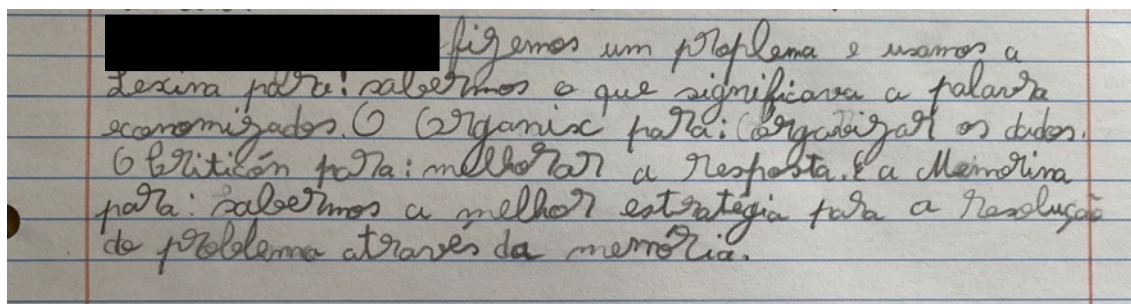 fizemos um proplema e usamos a
Lexina para: sabermos o que significava a palavra
economizados. O Organix para: organizar os dados.
O Criticón para: melhorar a resposta. E a Memorina
para: sabermos a melhor estratégia para a resolução
do problema através da memória.